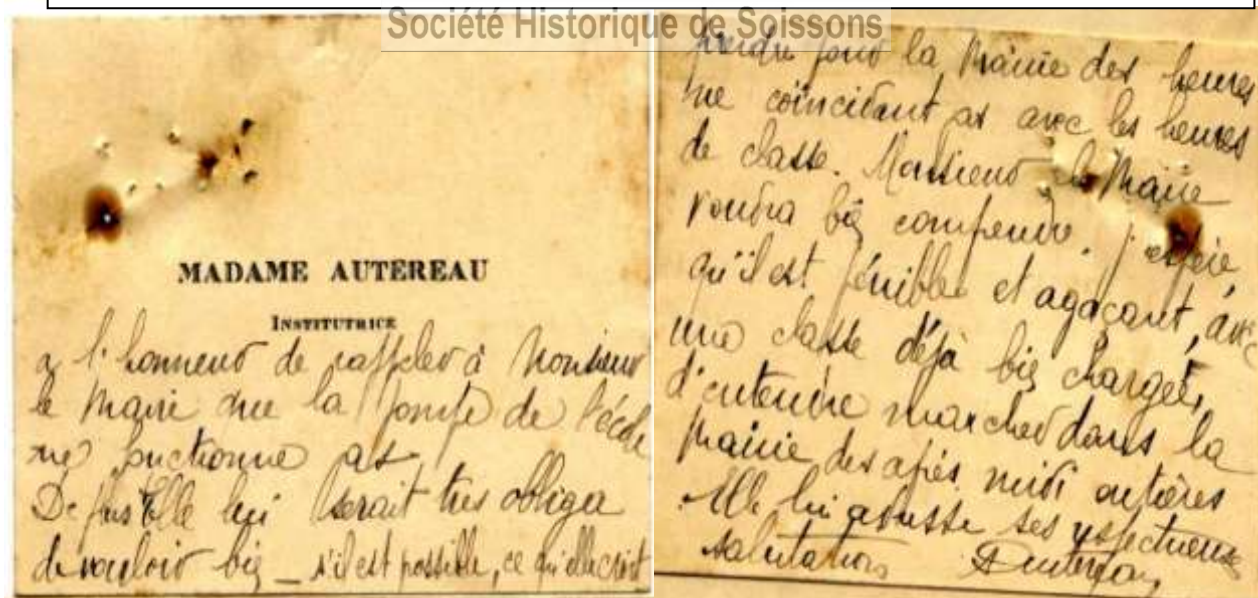 Société Historique de Soissons
MADAME AUTEREAU
INSTITUTRICE
a l'honneur de rappeler à Monsieur
le Maire que la pompe de l'école
ne fonctionne pas.
De plus Elle lui serait très obligée
de vouloir bien _ s'il est possible, ce qu'elle croit
prendre pour la Mairie des heures
ne coïncidant pas avec les heures
de classe. Monsieur le Maire
voudra bien comprendre, j'espère,
qu'il est pénible et agaçant, avec
une classe déjà bien chargée,
d'entendre marcher dans la
mairie des après midi entières
Elle lui adresse ses respectueuses
salutations Autereau